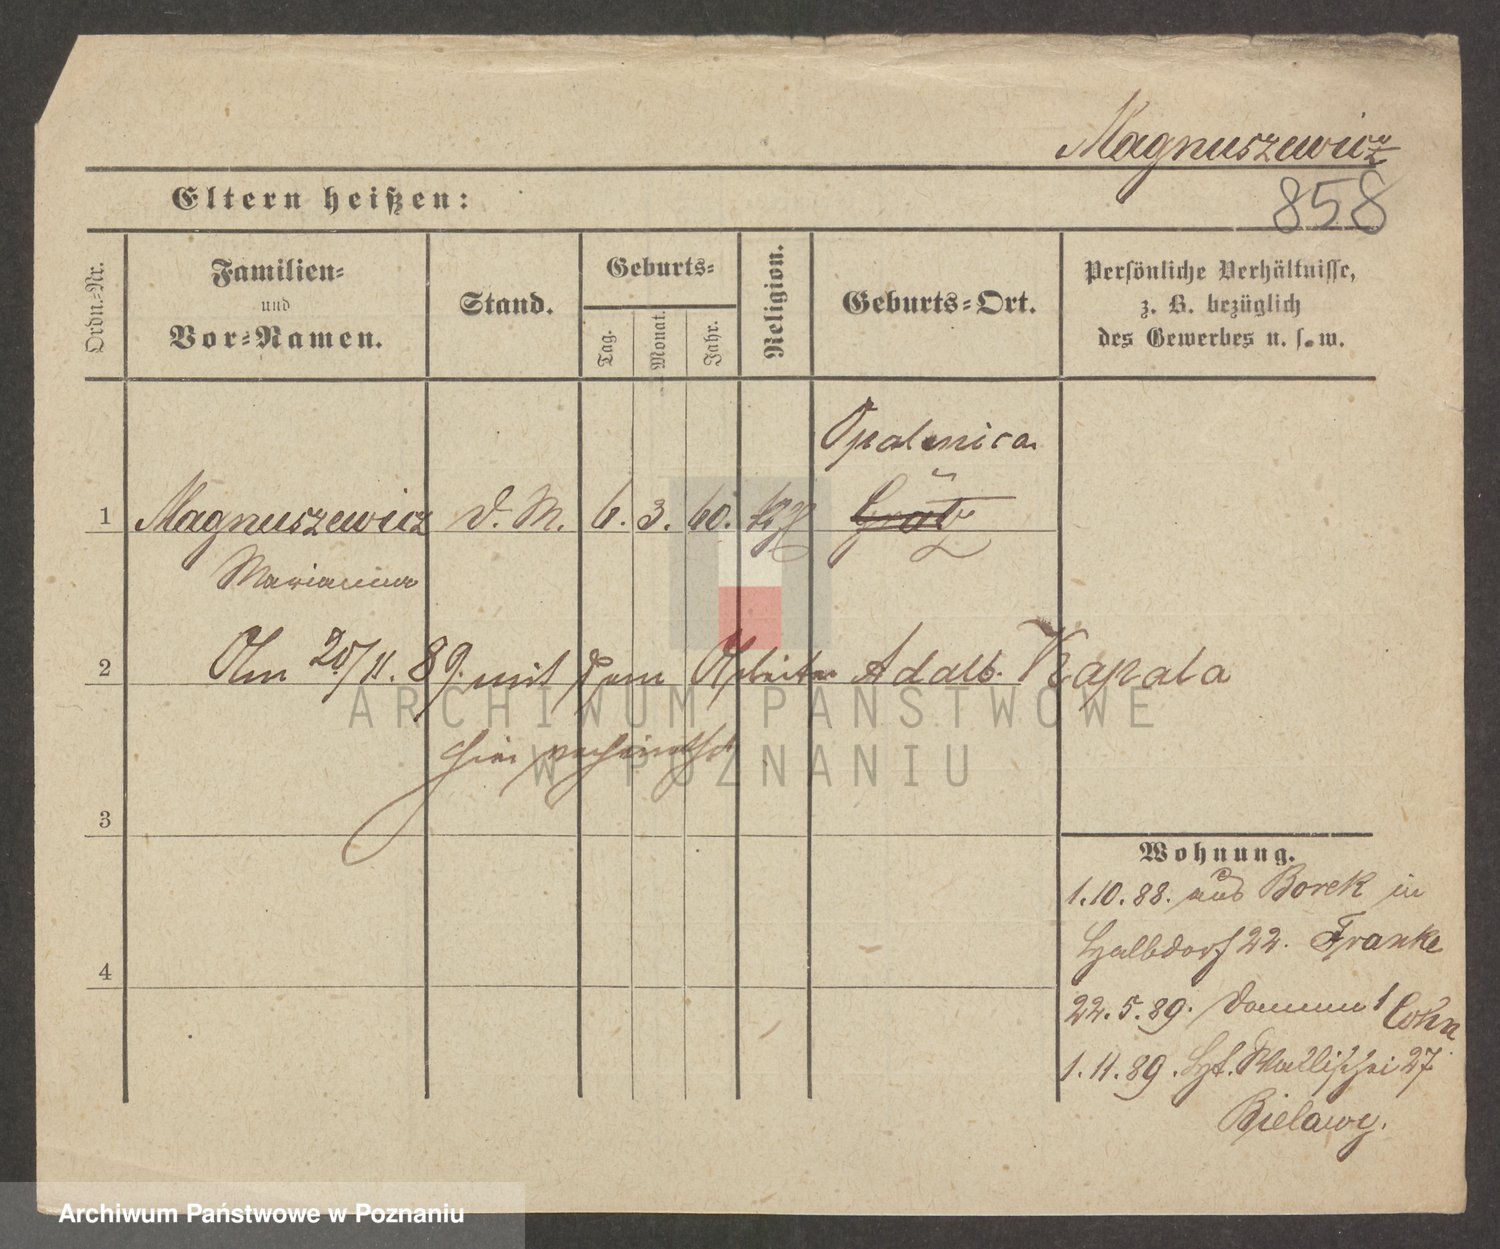 Magnuszewicz
858
Eltern heißen:
Ordn.-Nr.
Familien-
und
Vor-Namen.
Stand.
Geburts-
Tag.
Monat.
Jahr.
Religion.
Geburts-Ort.
Persönliche Verhältnisse,
z. B. bezüglich
des Gewerbes u. s. w.
Opalenica
1 Magnuszewicz D. M. 6. 3. 60. Grätz
Marianna
2 Am 20/11. 89. mit dem Arbeiter Adalb. Kapala
hier verheirathet
3
4
Wohnung.
1.10.88. aus Borek in
Halbdorf 22. Franke
22.5.89. Damm 1 Cohn
1.11.89. Wallischei 27
Bielawy.
ARCHIWUM PAŃSTWOWE
W POZNANIU
Archiwum Państwowe w Poznaniu